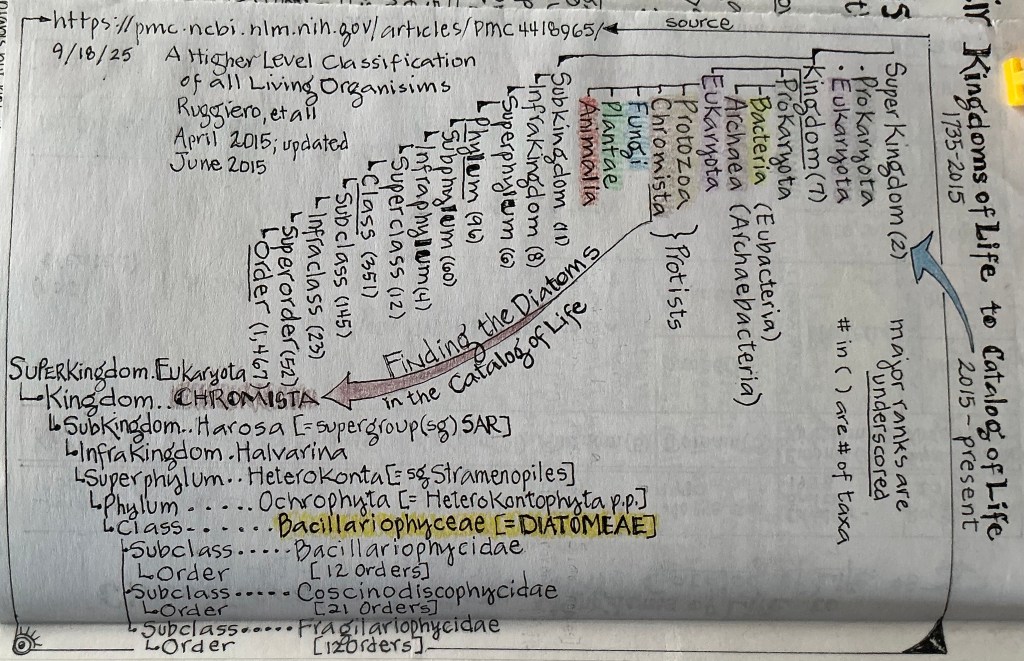 source
https://pmc.ncbi.nlm.nih.gov/articles/PMC4418965/
9/18/25
A Higher Level Classification
of all Living Organisims
Ruggiero, et all
April 2015; updated
June 2015
Kingdoms of Life to Catalog of Life
1735-2015
2015 - present
SuperKingdom (2)
· Prokaryota
· Eukaryota
major ranks are
underscored
# in ( ) are # of taxa
Kingdom (7)
Prokaryota
Bacteria (Eubacteria)
Archaea (Archaebacteria)
Eukaryota
Protozoa
Chromista
} Protists
Fungi
Plantae
Animalia
Subkingdom (11)
Infrakingdom (8)
Superphylum (6)
Phylum (96)
Subphylum (60)
Infraphylum (4)
Superclass (12)
Class (351)
Subclass (145)
Infraclass (23)
Superorder (52)
Order (1,467)
Finding the Diatoms
in the Catalog of Life
SUPERKingdom.Eukaryota
Kingdom..CHROMISTA
Subkingdom..Harosa [=supergroup(sg) SAR]
Infrakingdom.Halvarina
Superphylum..Heterokonta [=sg Stramenopiles]
Phylum......Ochrophyta [= Heterokontophyta p.p.]
Class.......Bacillariophyceae [=DIATOMEAE]
Subclass.....Bacillariophycidae
Order [12 Orders]
Subclass.....Coscinodiscophycidae
Order [21 Orders]
Subclass.....Fragilariophycidae
Order [12 Orders]